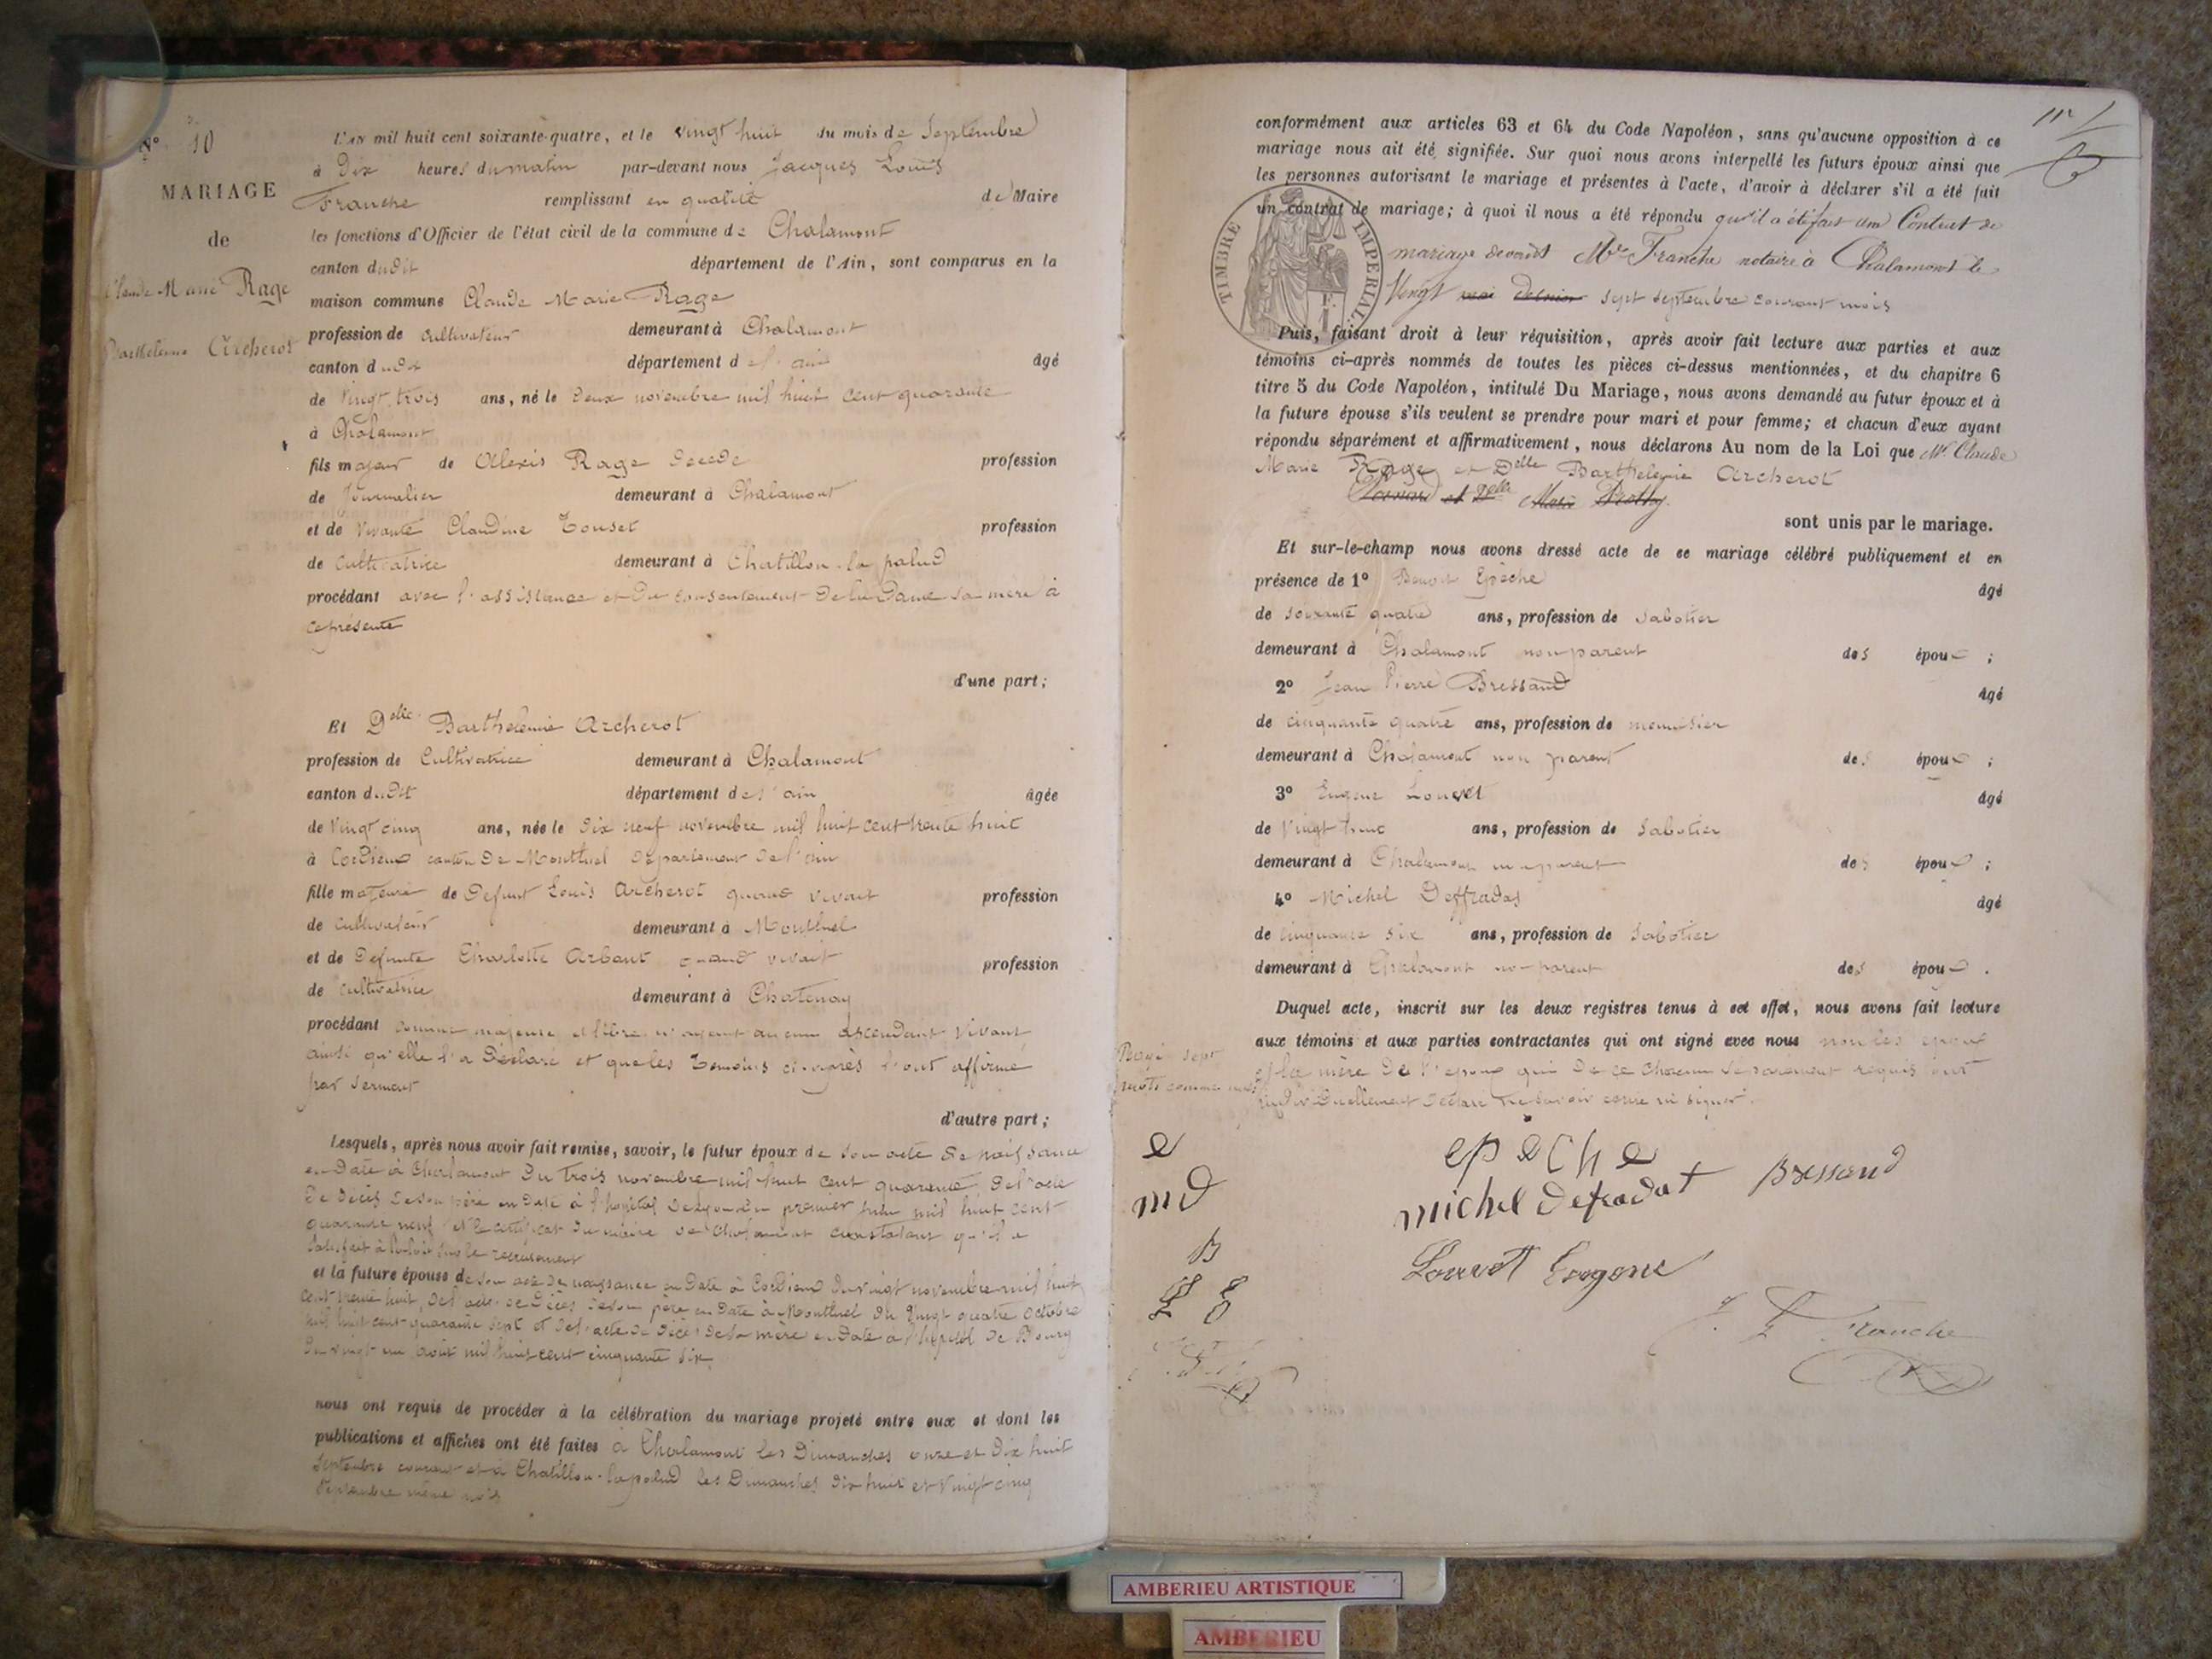 N° 10
MARIAGE
de
Claude Marie Rage
Barthelemie Archerot
L'AN mil huit cent soixante-quatre, et le vingt huit du mois de Septembre
à Dix heures du matin par-devant nous Jacques Louis
Franche remplissant en qualité de Maire
les fonctions d'Officier de l'état civil de la commune de Chalamont
canton dudit département de l'Ain, sont comparus en la
maison commune Claude Marie Rage
profession de cultivateur demeurant à Chalamont
canton dudit département de l'ain âgé
de vingt trois ans, né le deux novembre mil huit cent quarante
à Chalamont
fils majeur de Alexis Rage decede profession
de Journalier demeurant à Chalamont
et de vivante Claudine Touset profession
de cultivatrice demeurant à Chatillon la palud
procédant avec l'assistance et du consentement de la Dame sa mère à
ce présente
d'une part;
Et Delle Barthelemie Archerot
profession de Cultivatrice demeurant à Chalamont
canton dudit département de l'ain âgée
de Vingt cinq ans, née le dix neuf novembre mil huit cent trente huit
à Cordieux canton de Montluel département de l'ain
fille majeure de Defunt Louis Archerot quand vivait profession
de cultivateur demeurant à Montluel
et de Defunte Charlotte Arbant quand vivait profession
de cultivatrice demeurant à Chatenay
procédant comme majeure et libre n'ayant aucun ascendant vivant
ainsi qu'elle l'a déclaré et que les temoins ci-après l'ont affirmé
par serment
d'autre part;
Lesquels, après nous avoir fait remise, savoir, le futur époux de son acte de naissance
en date à Chalamont du trois novembre mil huit cent quarante, de l'acte
de décès de son père en date à l'hopital de Lyon du premier juin mil huit cent
quarante neuf et le certificat du maire de Chalamont constatant qu'il a
satisfait à la loi sur le recrutement
et la future épouse de son acte de naissance en date à Cordieux du vingt novembre mil huit
cent trente huit, de l'acte de décès de son père en date à Montluel du vingt quatre octobre
mil huit cent quarante sept et de l'acte de décès de sa mère en date à l'hopital de Bourg
du vingt un août mil huit cent cinquante six,
nous ont requis de procéder à la célébration du mariage projeté entre eux et dont les
publications et affiches ont été faites à Chalamont les Dimanches onze et dix huit
Septembre courant et à Chatillon-lapalud les Dimanches dix huit et vingt cinq
Septembre même mois
conformément aux articles 63 et 64 du Code Napoléon, sans qu'aucune opposition à ce
mariage nous ait été signifiée. Sur quoi nous avons interpellé les futurs époux ainsi que
les personnes autorisant le mariage et présentes à l'acte, d'avoir à déclarer s'il a été fait
un contrat de mariage; à quoi il nous a été répondu qu'il a été fait un Contrat de
TIMBRE IMPERIAL
mariage devant Me Franche notaire à Chalamont le
Vingt mai dernier sept septembre courant mois
Puis, faisant droit à leur réquisition, après avoir fait lecture aux parties et aux
témoins ci-après nommés de toutes les pièces ci-dessus mentionnées, et du chapitre 6
titre 5 du Code Napoléon, intitulé Du Mariage, nous avons demandé au futur époux et à
la future épouse s'ils veulent se prendre pour mari et pour femme; et chacun d'eux ayant
répondu séparément et affirmativement, nous déclarons Au nom de la Loi que Mr Claude
Marie Rage et Delle Barthelemie Archerot
et Delle
sont unis par le mariage.
Et sur-le-champ nous avons dressé acte de ce mariage célébré publiquement et en
présence de 1° Benoit Epèche âgé
de soixante quatre ans, profession de sabotier
demeurant à Chalamont non parent des époux ;
2° Jean Pierre Bressand âgé
de cinquante quatre ans, profession de menuisier
demeurant à Chalamont non parent des époux ;
3° Eugene Louvet âgé
de Vingt ans, profession de Sabotier
demeurant à Chalamont non parent des époux ;
4° Michel Deffradas âgé
de cinquante six ans, profession de Sabotier
demeurant à Chalamont non-parent des époux .
Duquel acte, inscrit sur les deux registres tenus à cet effet, nous avons fait lecture
aux témoins et aux parties contractantes qui ont signé avec nous non les époux
et la mère de l'epoux qui de ce chacun séparement requis ont
individuellement déclaré ne savoir ecrire ni signer.
Rayé sept
mots comme nuls
e
m D
B
L E
epeche
michel Defradat Bressand
Louvet Eugene
J. L. Franche
AMBERIEU ARTISTIQUE
AMBERIEU